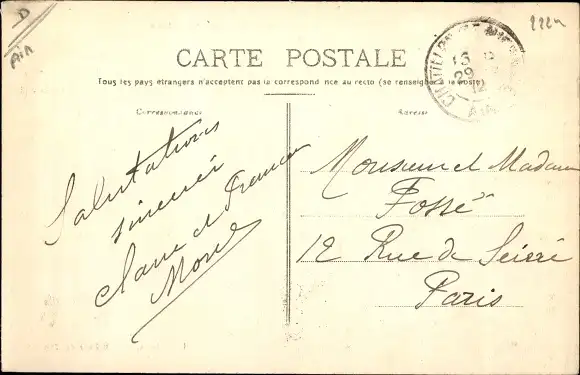 D
Ain
222
CARTE POSTALE
Tous les pays étrangers n'acceptent pas la correspondance au recto (se renseigner à la poste)
Correspondance
Adresse
CHATILLON
15
AIN
Salutations
Claire et
Monsieur et Madame
Fossé
12 Rue de
Paris